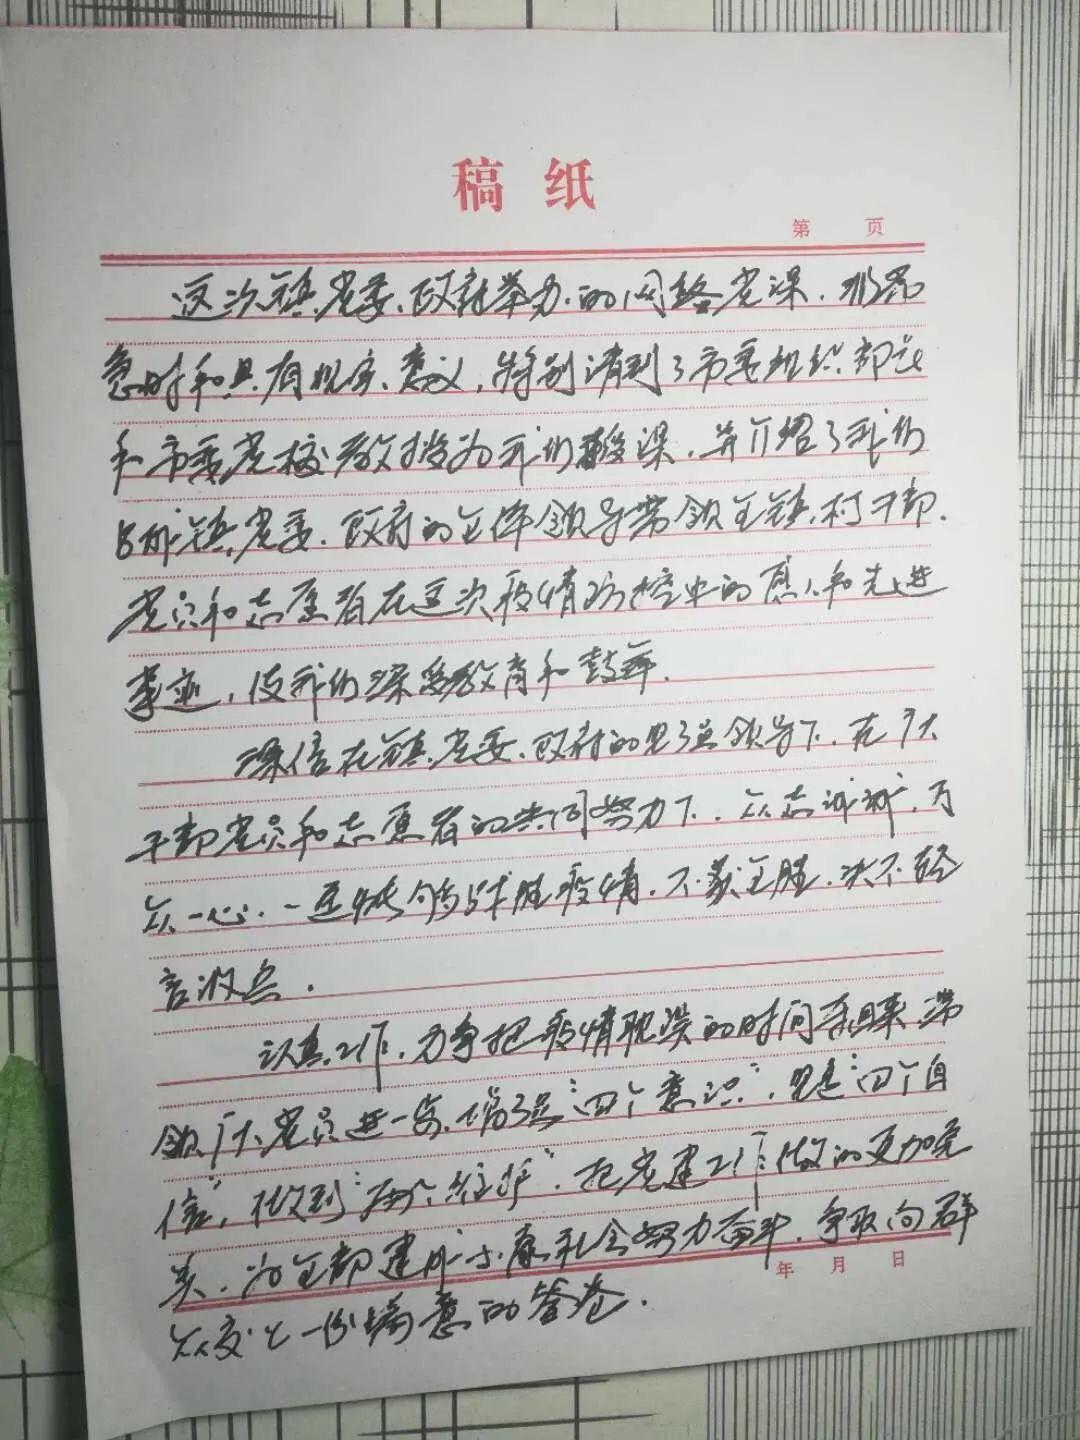 稿纸
第 页
这次镇党委、政府举办的网络党课,非常
急时和具有现实意义,特别请到了市委组织部
和市委党校教授为我们授课,并介绍了我们
镇党委、政府的全体领导带领全镇村干部、
党员和志愿者在这次疫情防控中的感人和先进
事迹,使我们深受教育和鼓舞.
深信在镇党委、政府的坚强领导下,在广大
干部党员和志愿者的共同努力下,众志成城,万
众一心,一定能够战胜疫情,不获全胜,决不轻
言收兵.
认真工作,力争把疫情耽误的时间夺回来,带
领广大党员进一步增强“四个意识”,坚定“四个自
信”,做到“两个维护”,把党建工作做的更加完
美,为全部建成小康社会努力奋斗,争取向群
众交上一份满意的答卷.
年 月 日